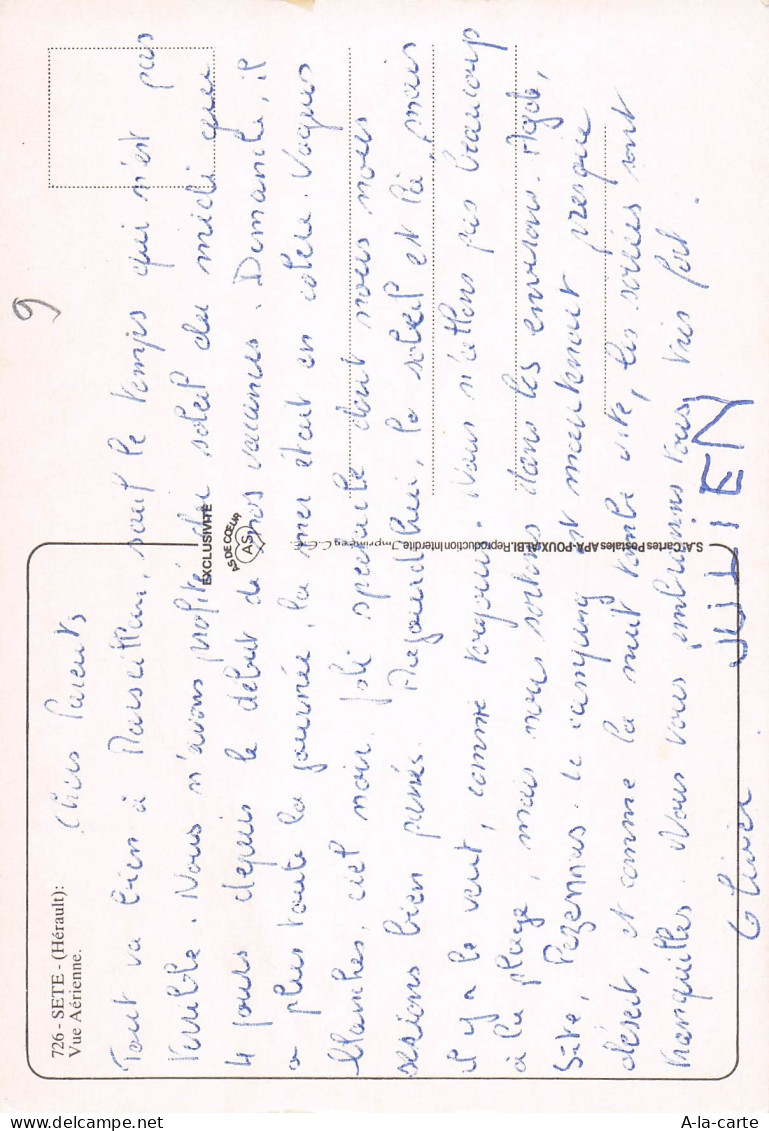 726 - SETE - (Hérault):
Vue Aérienne.
EXCLUSIVITÉ
AS DE CŒUR
AS
S.A. Cartes Postales APA-POUX-ALBI. Reproduction Interdite.
9
Chers Parents
Tout va bien à Marseillan, sauf le temps qui n'est pas
terrible. Nous n'avons profité du soleil du midi que
4 jours depuis le début de nos vacances. Dimanche, il
a plu toute la journée, la mer était en colère. Vagues
blanches, ciel noir. Joli spectacle dont nous nous
serions bien passés. Aujourd'hui, le soleil est là, mais
il y a le vent, comme toujours. Nous n'allons pas beaucoup
à la plage, mais nous sortons dans les environs. Agde,
Sète, Pézennas. Le camping est maintenant presque
désert, et comme la nuit tombe vite, les soirées sont
tranquilles. Nous vous embrassons tous très fort.
Olivier JULIEN
A-la-carte